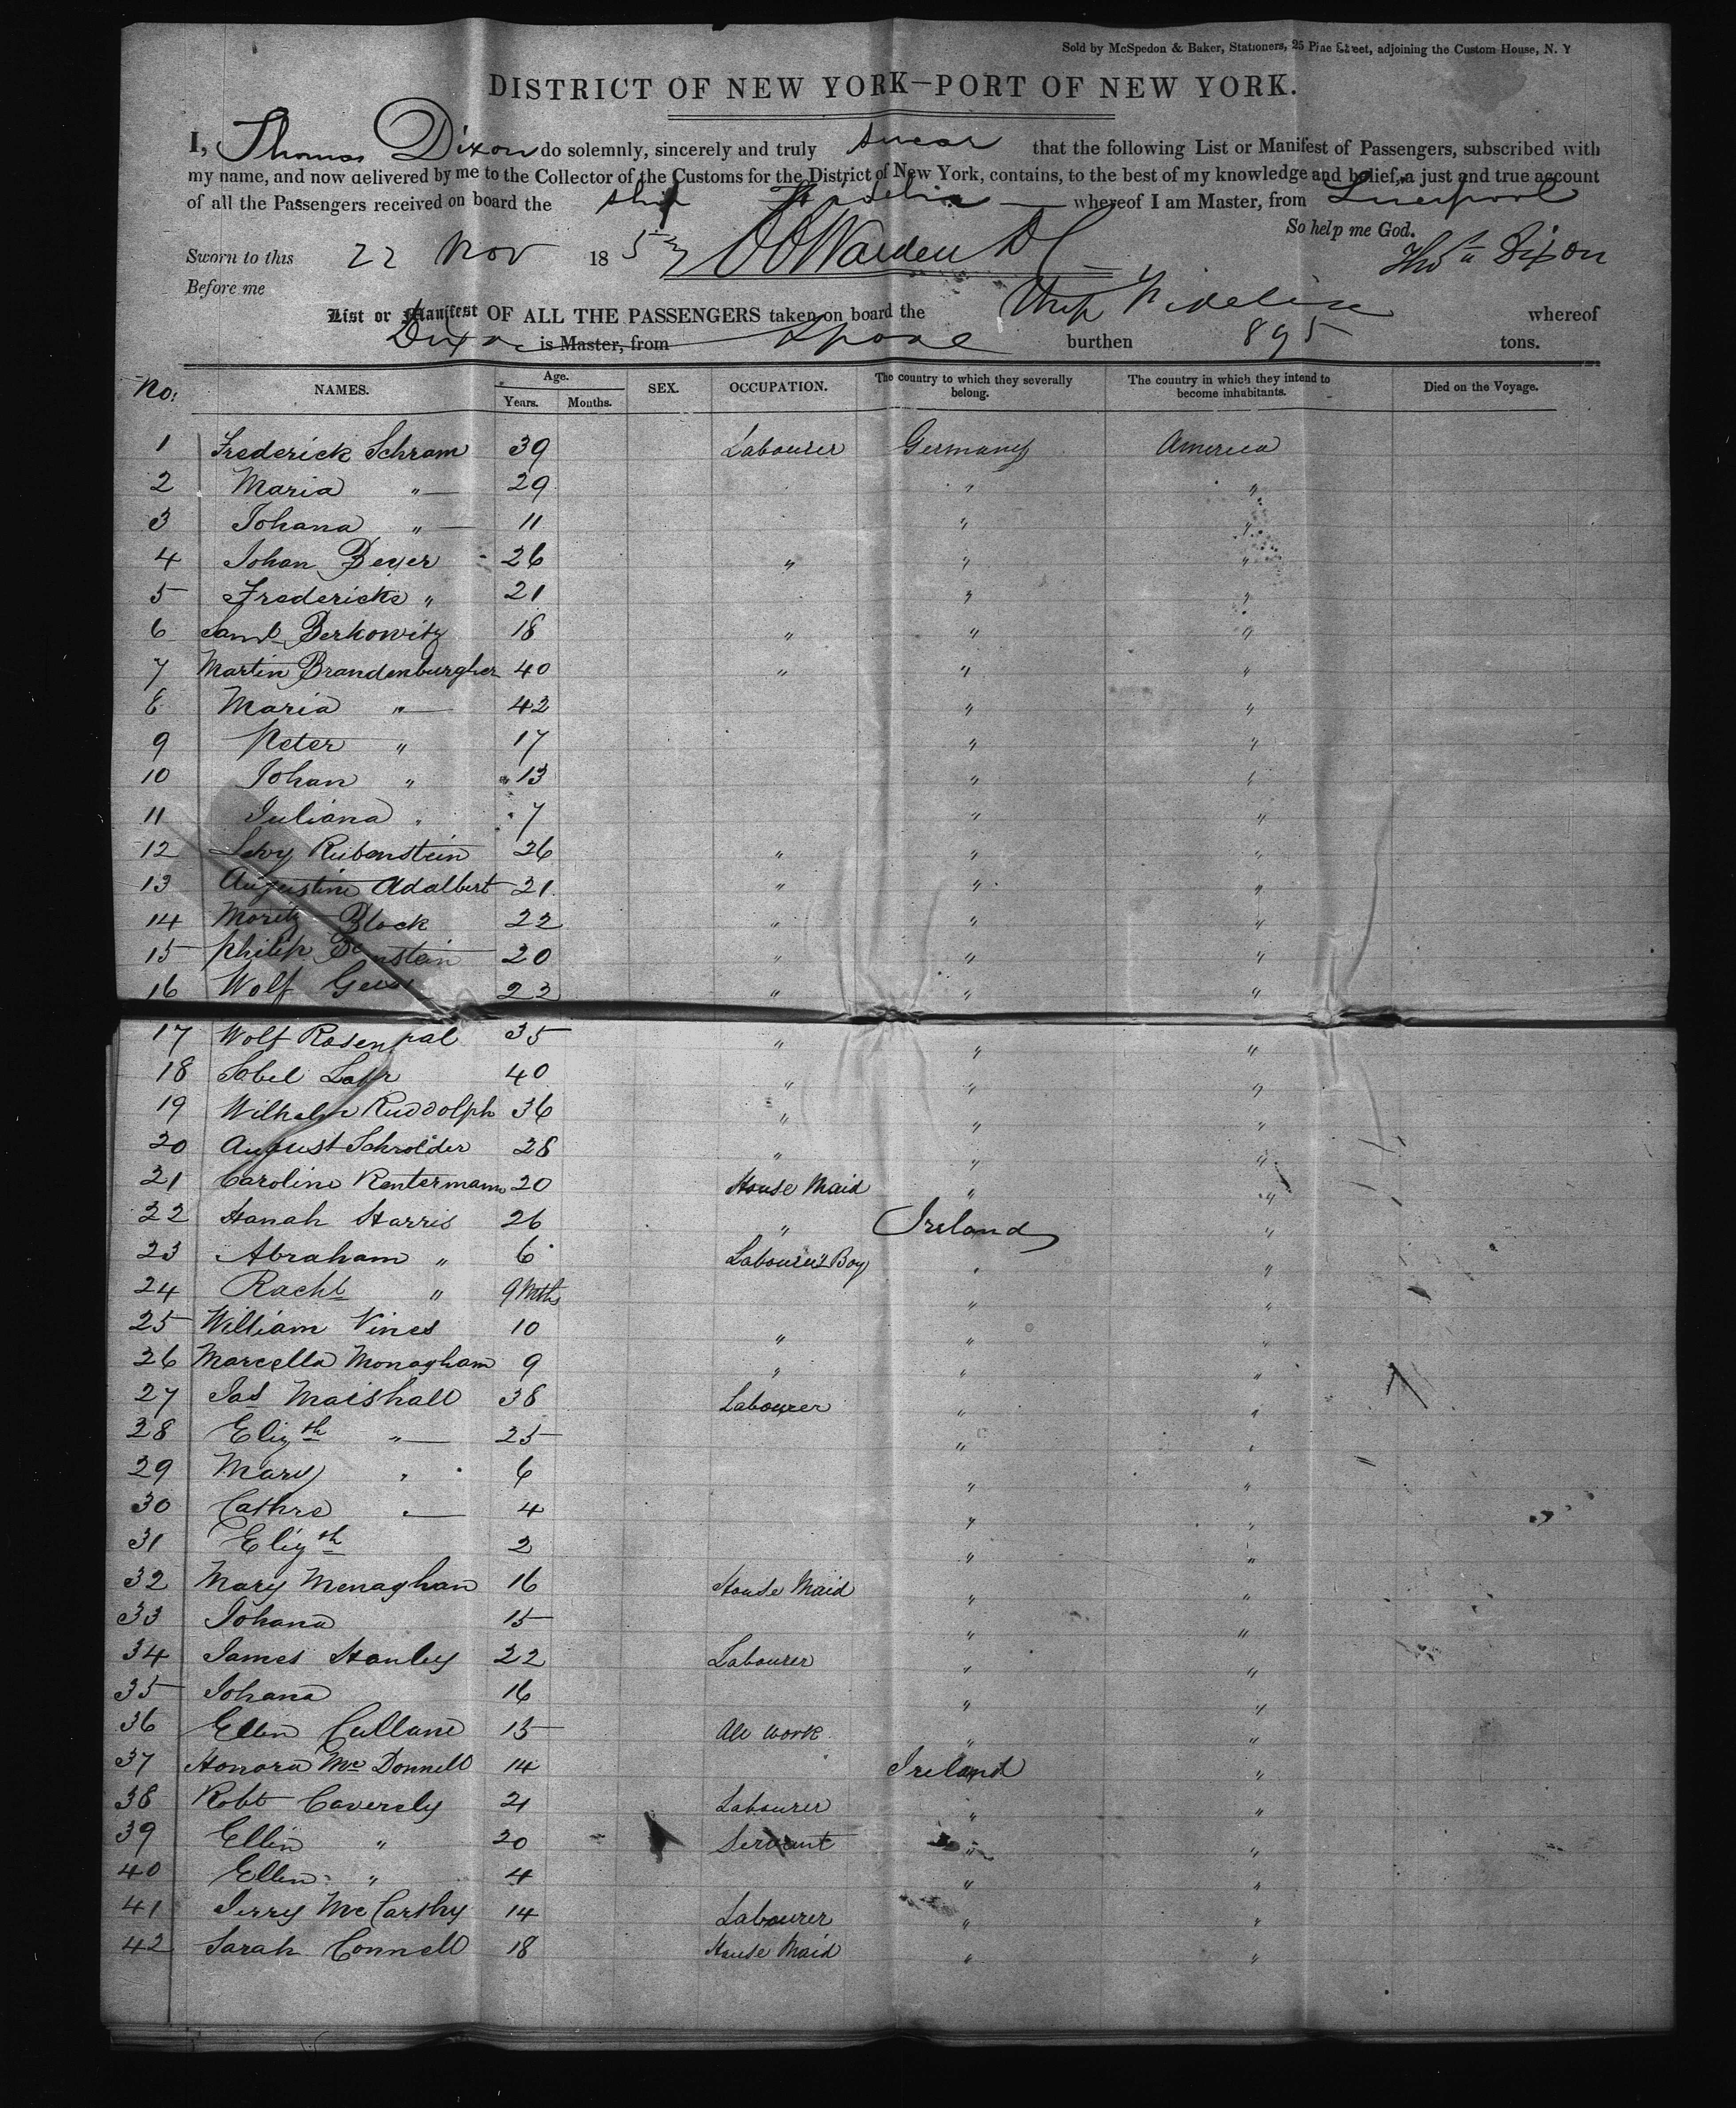 Sold by McSpedon & Baker, Stationers, 25 Pine Street, adjoining the Custom House, N. Y
DISTRICT OF NEW YORK—PORT OF NEW YORK.
I, Thomas Dixon do solemnly, sincerely and truly swear that the following List or Manifest of Passengers, subscribed with
my name, and now delivered by me to the Collector of the Customs for the District of New York, contains, to the best of my knowledge and belief, a just and true account
of all the Passengers received on board the ship Fidelia whereof I am Master, from Liverpool
So help me God.
Sworn to this 22 Nov 185 Thos Dixon
Before me
List or Manifest OF ALL THE PASSENGERS taken on board the Ship Fidelia whereof
Dixon is Master, from Lpool burthen 895 tons.
No. NAMES. Age. Years. Months. SEX. OCCUPATION. The country to which they severally belong. The country in which they intend to become inhabitants. Died on the Voyage.
1 Frederick Schram 39 Labourer Germany America
2 Maria " 29 " "
3 Johana " 11 " "
4 Johan Beyer 26 " " "
5 Fredericke " 21 " "
6 Saml Berkowitz 18 " " "
7 Martin Brandenburgher 40 " " "
8 Maria " 42 " "
9 Peter " 17 " "
10 Johan " 13 " "
11 Juliana " 7 " "
12 Levy Rubenstein 26 " " "
13 Augustine Adalbert 21 " " "
14 Moritz Block 22 " " "
15 Philip 20 " " "
16 Wolf 22 " " "
17 Wolf 35 " " "
18 Sobel 40 " " "
19 Wilhelm Ruddolph 36 " " "
20 August Schroider 28 " " "
21 Caroline Rentermann 20 House Maid " "
22 Hanah Harris 26 " Ireland "
23 Abraham " 6 Labourer Boy " "
24 Rachl " 9 Mths " "
25 William Vines 10 " " "
26 Marcella Monagham 9 " " "
27 Jas Maishall 38 Labourer " "
28 Elizth " 25 " "
29 Mary " 6 " "
30 Cathre " 4 " "
31 Elizth 2 " "
32 Mary Menaghan 16 House Maid " "
33 Johana 15 " "
34 James Hanley 22 Labourer " "
35 Johana 16 " "
36 Ellen Cullane 15 All work " "
37 Honora McDonnell 14 Ireland "
38 Robt Caverely 21 Labourer " "
39 Ellen " 20 Servant " "
40 Ellen " 4 " "
41 Jerry McCarthy 14 Labourer " "
42 Sarah Connell 18 House Maid " "